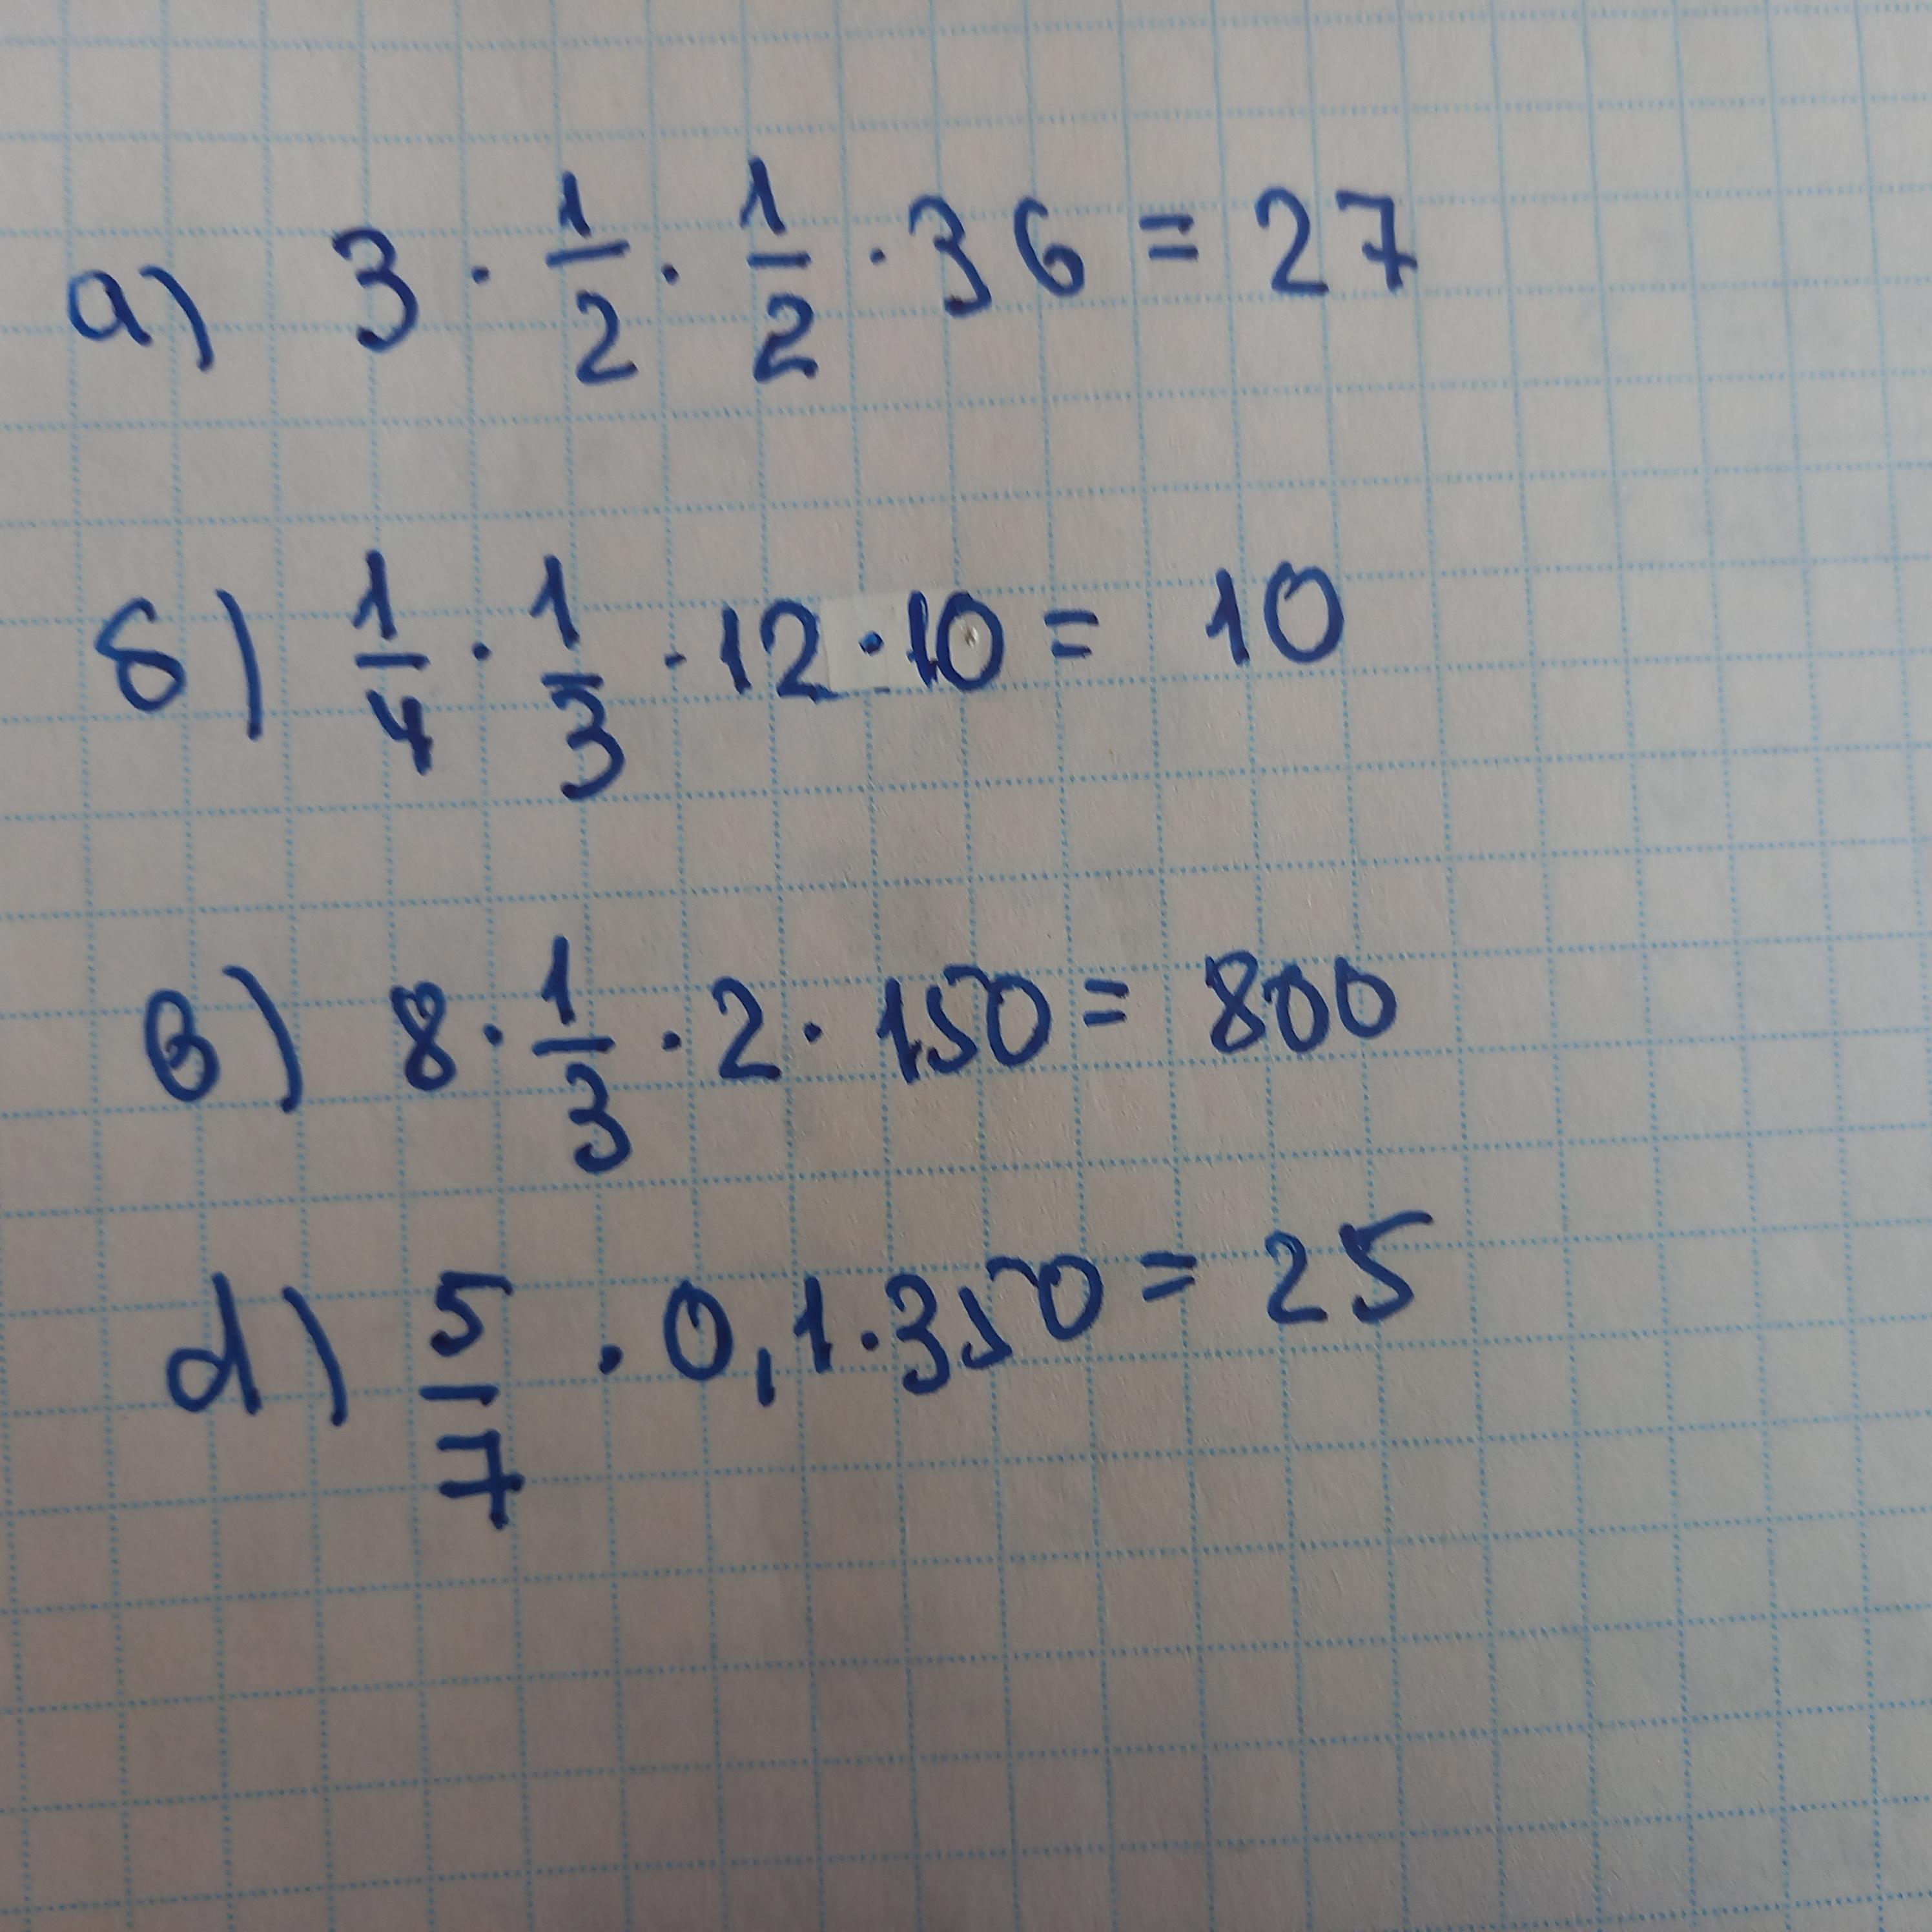 а) 3 · 1/2 · 1/2 · 36 = 27
б) 1/4 · 1/3 · 12 · 10 = 10
в) 8 · 1/3 · 2 · 150 = 800
d) 5/7 · 0,1 · 350 = 25